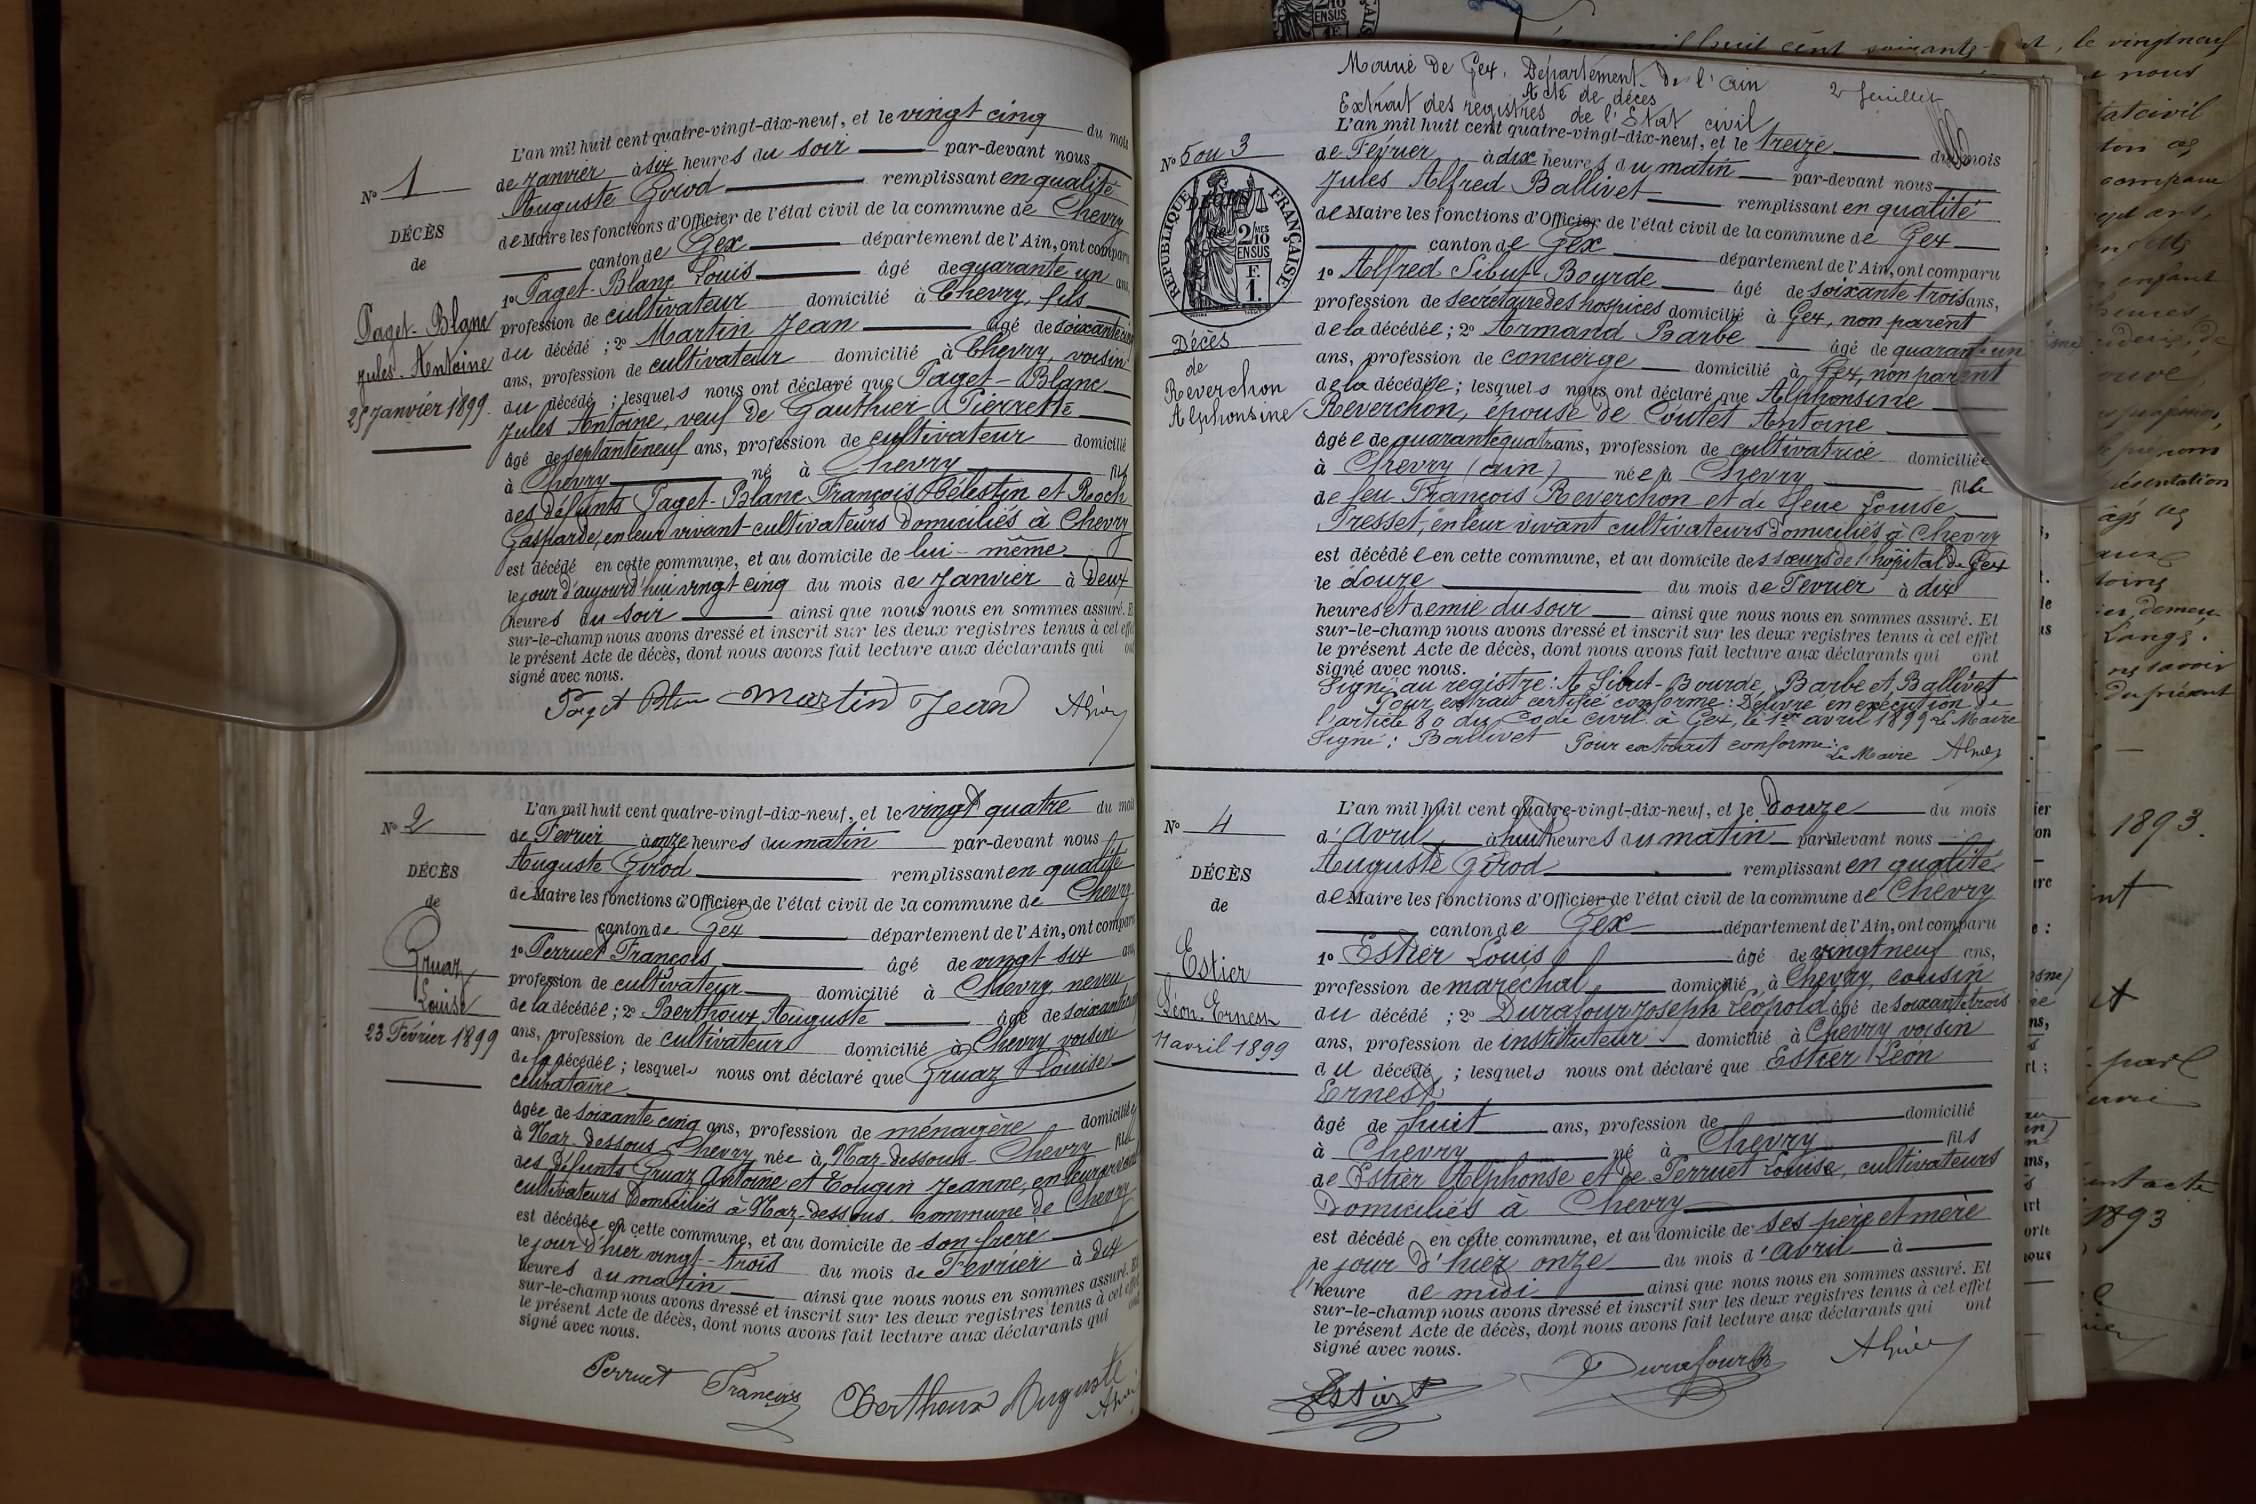 L'an mil huit cent quatre-vingt-dix-neuf, et le vingt cinq du mois
de Janvier à six heures du soir par-devant nous
Auguste Girod remplissant en qualité
de Maire les fonctions d'Officier de l'état civil de la commune de Chevry
canton de Gex département de l'Ain, ont comparu
1º Paget-Blanc Louis âgé de quarante un ans,
profession de cultivateur domicilié à Chevry, fils
du décédé ; 2º Martin Jean âgé de soixante
ans, profession de cultivateur domicilié à Chevry, voisin
du décédé ; lesquels nous ont déclaré que Paget-Blanc
Jules Antoine, veuf de Gauthier Pierrette
âgé de septante neuf ans, profession de cultivateur domicilié
à Chevry né à Chevry fils
des défunts Paget-Blanc François Célestin et Roch
Gasparde, en leur vivant cultivateurs domiciliés à Chevry
est décédé en cette commune, et au domicile de lui-même
le jour d'aujourd'hui vingt cinq du mois de Janvier à deux
heures du soir ainsi que nous nous en sommes assuré. Et
sur-le-champ nous avons dressé et inscrit sur les deux registres tenus à cet effet
le présent Acte de décès, dont nous avons fait lecture aux déclarants qui ont
signé avec nous.
Martin Jean
Nº 1
DÉCÈS
de
Paget-Blanc
Jules-Antoine
25 Janvier 1899.
L'an mil huit cent quatre-vingt-dix-neuf, et le vingt quatre du mois
de Fevrier à onze heures du matin par-devant nous
Auguste Girod remplissant en qualité
de Maire les fonctions d'Officier de l'état civil de la commune de Chevry
canton de Gex département de l'Ain, ont comparu
1º Perruet François âgé de vingt six ans
profession de cultivateur domicilié à Chevry, neveu
de la décédée ; 2º Berthoux Auguste âgé de soixante
ans, profession de cultivateur domicilié à Chevry voisin
de la décédée ; lesquels nous ont déclaré que Gruaz Louise
célibataire
âgée de soixante cinq ans, profession de ménagère domiciliée
à Naz-dessous Chevry née à Naz-dessous-Chevry fille
des défunts Gruaz Antoine et Tougin Jeanne, en leur vivant
cultivateurs domiciliés à Naz-dessous, commune de Chevry
est décédée en cette commune, et au domicile de son frère
le jour d'hier vingt-trois du mois de Fevrier à dix
heures du matin ainsi que nous nous en sommes assuré. Et
sur-le-champ nous avons dressé et inscrit sur les deux registres tenus à cet effet
le présent Acte de décès, dont nous avons fait lecture aux déclarants qui ont
signé avec nous.
Perruet François Berthoux Auguste
Nº 2
DÉCÈS
de
Gruaz
Louise
23 Février 1899
Mairie de Gex. Département de l'Ain
Acte de décès
2e feuillet
Extrait des registres de l'Etat civil
L'an mil huit cent quatre-vingt-dix-neuf, et le treize du mois
de Fevrier à dix heures du matin par-devant nous
Jules Alfred Ballivet remplissant en qualité
de Maire les fonctions d'Officier de l'état civil de la commune de Gex
canton de Gex département de l'Ain, ont comparu
1º Alfred Sibut-Bourde âgé de soixante trois ans,
profession de secrétaire des hospices domicilié à Gex, non parent
de la décédée ; 2º Armand Barbe âgé de quarante un
ans, profession de concierge domicilié à Gex, non parent
de la décédée ; lesquels nous ont déclaré que Alphonsine
Reverchon, epouse de Coutet Antoine
âgée de quarante quatre ans, profession de cultivatrice domiciliée
à Chevry (ain) née à Chevry fille
de feu François Reverchon et de feue Louise
Tresset, en leur vivant cultivateurs domiciliés à Chevry
est décédée en cette commune, et au domicile des sœurs de l'hôpital de Gex
le douze du mois de Fevrier à dix
heures et demie du soir ainsi que nous nous en sommes assuré. Et
sur-le-champ nous avons dressé et inscrit sur les deux registres tenus à cet effet
le présent Acte de décès, dont nous avons fait lecture aux déclarants qui ont
signé avec nous.
Signé au registre : A Sibut-Bourde, Barbe et Ballivet
Pour extrait certifié conforme : Délivré en exécution de
l'article 80 du Code civil. à Gex, le 1er avril 1899 Le Maire
Signé : Ballivet Pour extrait conforme :
Le Maire
Nº 5 ou 3
RÉPUBLIQUE FRANÇAISE
DÉCÈS
de
2/10
EN SUS
F.
1.
Décès
de
Reverchon
Alphonsine
L'an mil huit cent quatre-vingt-dix-neuf, et le douze du mois
d'Avril à huit heures du matin par-devant nous
Auguste Girod remplissant en qualité
de Maire les fonctions d'Officier de l'état civil de la commune de Chevry
canton de Gex département de l'Ain, ont comparu
1º Estier Louis âgé de vingt neuf ans,
profession de maréchal domicilié à Chevry, cousin
du décédé ; 2º Durafour Joseph Léopold âgé de soixante trois
ans, profession de instituteur domicilié à Chevry voisin
du décédé ; lesquels nous ont déclaré que Estier Léon
Ernest
âgé de huit ans, profession de domicilié
à Chevry né à Chevry fils
de Estier Alphonse et de Perruet Louise, cultivateurs
domiciliés à Chevry
est décédé en cette commune, et au domicile de ses père et mère
le jour d'hier onze du mois d'Avril à
l'heure de midi ainsi que nous nous en sommes assuré. Et
sur-le-champ nous avons dressé et inscrit sur les deux registres tenus à cet effet
le présent Acte de décès, dont nous avons fait lecture aux déclarants qui ont
signé avec nous.
Estier Durafour
Nº 4
DÉCÈS
de
Estier
Léon-Ernest
11 avril 1899
le vingt neuf
1893.
1893